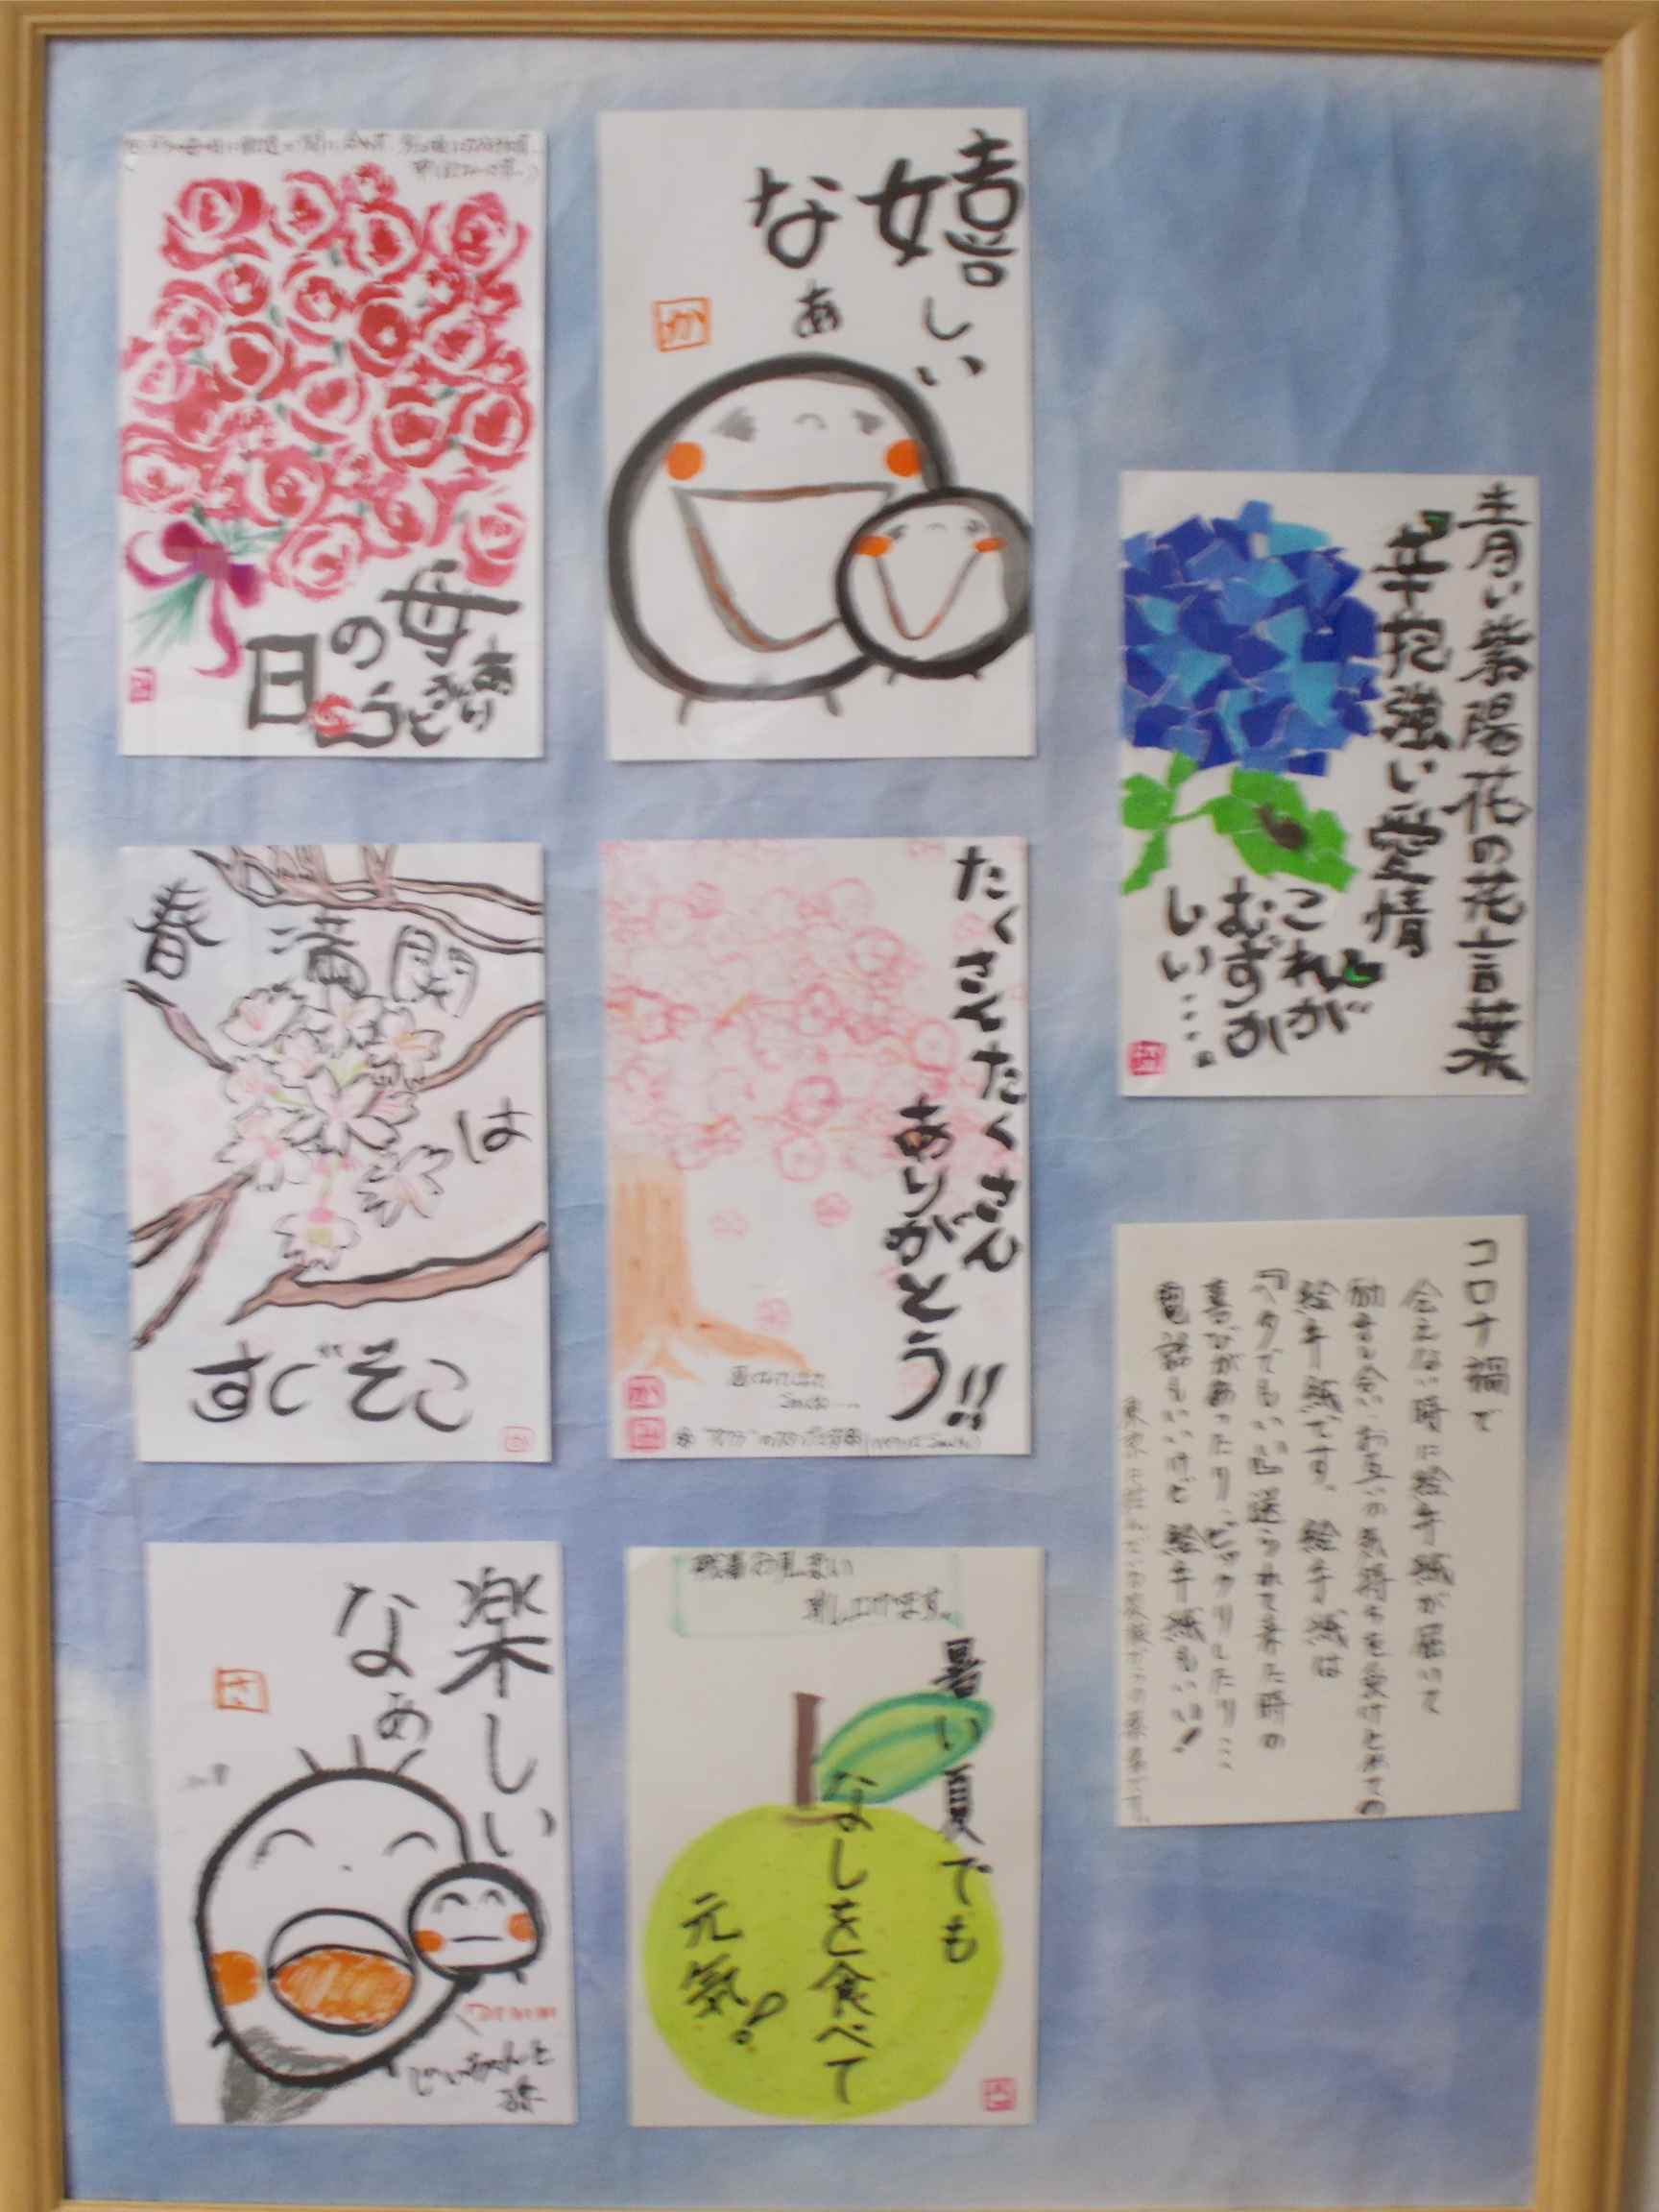 嬉しい
なぁ
か
母の日
ありがとう
青い紫陽花の花言葉
辛抱強い愛情
これが
むずか
しい・・・。
春満開
は
すぐそこ
たくさんたくさん
ありがとう!!
コロナ禍で
会えない時に絵手紙が届いて
励まし合い、お互いの気持ちを受けとめての
絵手紙です。絵手紙は
『ヘタでもいい』送られて来た時の
喜びがあったり、ビックリしたり…
電話もいいけど絵手紙もいい!
楽しい
なぁ
さ
じいちゃんと
残暑お見舞い
申し上げます。
暑い夏でも
なしを食べて
元気!